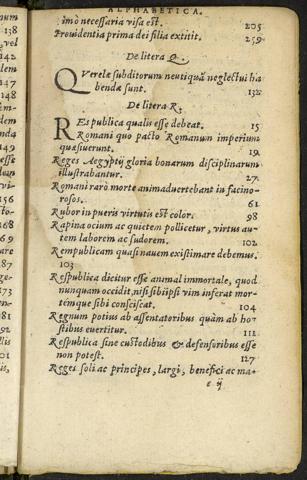 ALPHABETICA.
imò necessaria visa est. 205
Prouidentia prima dei filia extitit. 259
De litera Q.
Querelæ subditorum neutiquã neglectui ha
bendæ sunt. 132
De litera R.
RES publica qualis esse debeat. 15
Romani quo pacto Romanum imperium
quæsiuerunt. 19.
Reges Aegyptij gloria bonarum disciplinarum
illustrabantur. 27.
Romani rarò morte animaduertebant in facino-
rosos. 61
Rubor in pueris virtutis est color. 98
Rapina ocium ac quietem pollicetur, virtus au-
tem laborem ac sudorem. 102
Rempublicam quasi nauem existimare debemus.
103
Respublica dicitur esse animal immortale, quod
nunquam occidit, nisi sibi ipsi vim inferat mor-
temque sibi consciscat. 104
Regnum potius ab assentatoribus quàm ab ho-
stibus euertitur. 111
Respublica sine custodibus & defensoribus esse
non potest. 127
Reges soli ac principes, largi, benefici ac ma-
e ij
138
vel
142
147
148
149
esse
den
168
169
173
187
201
101